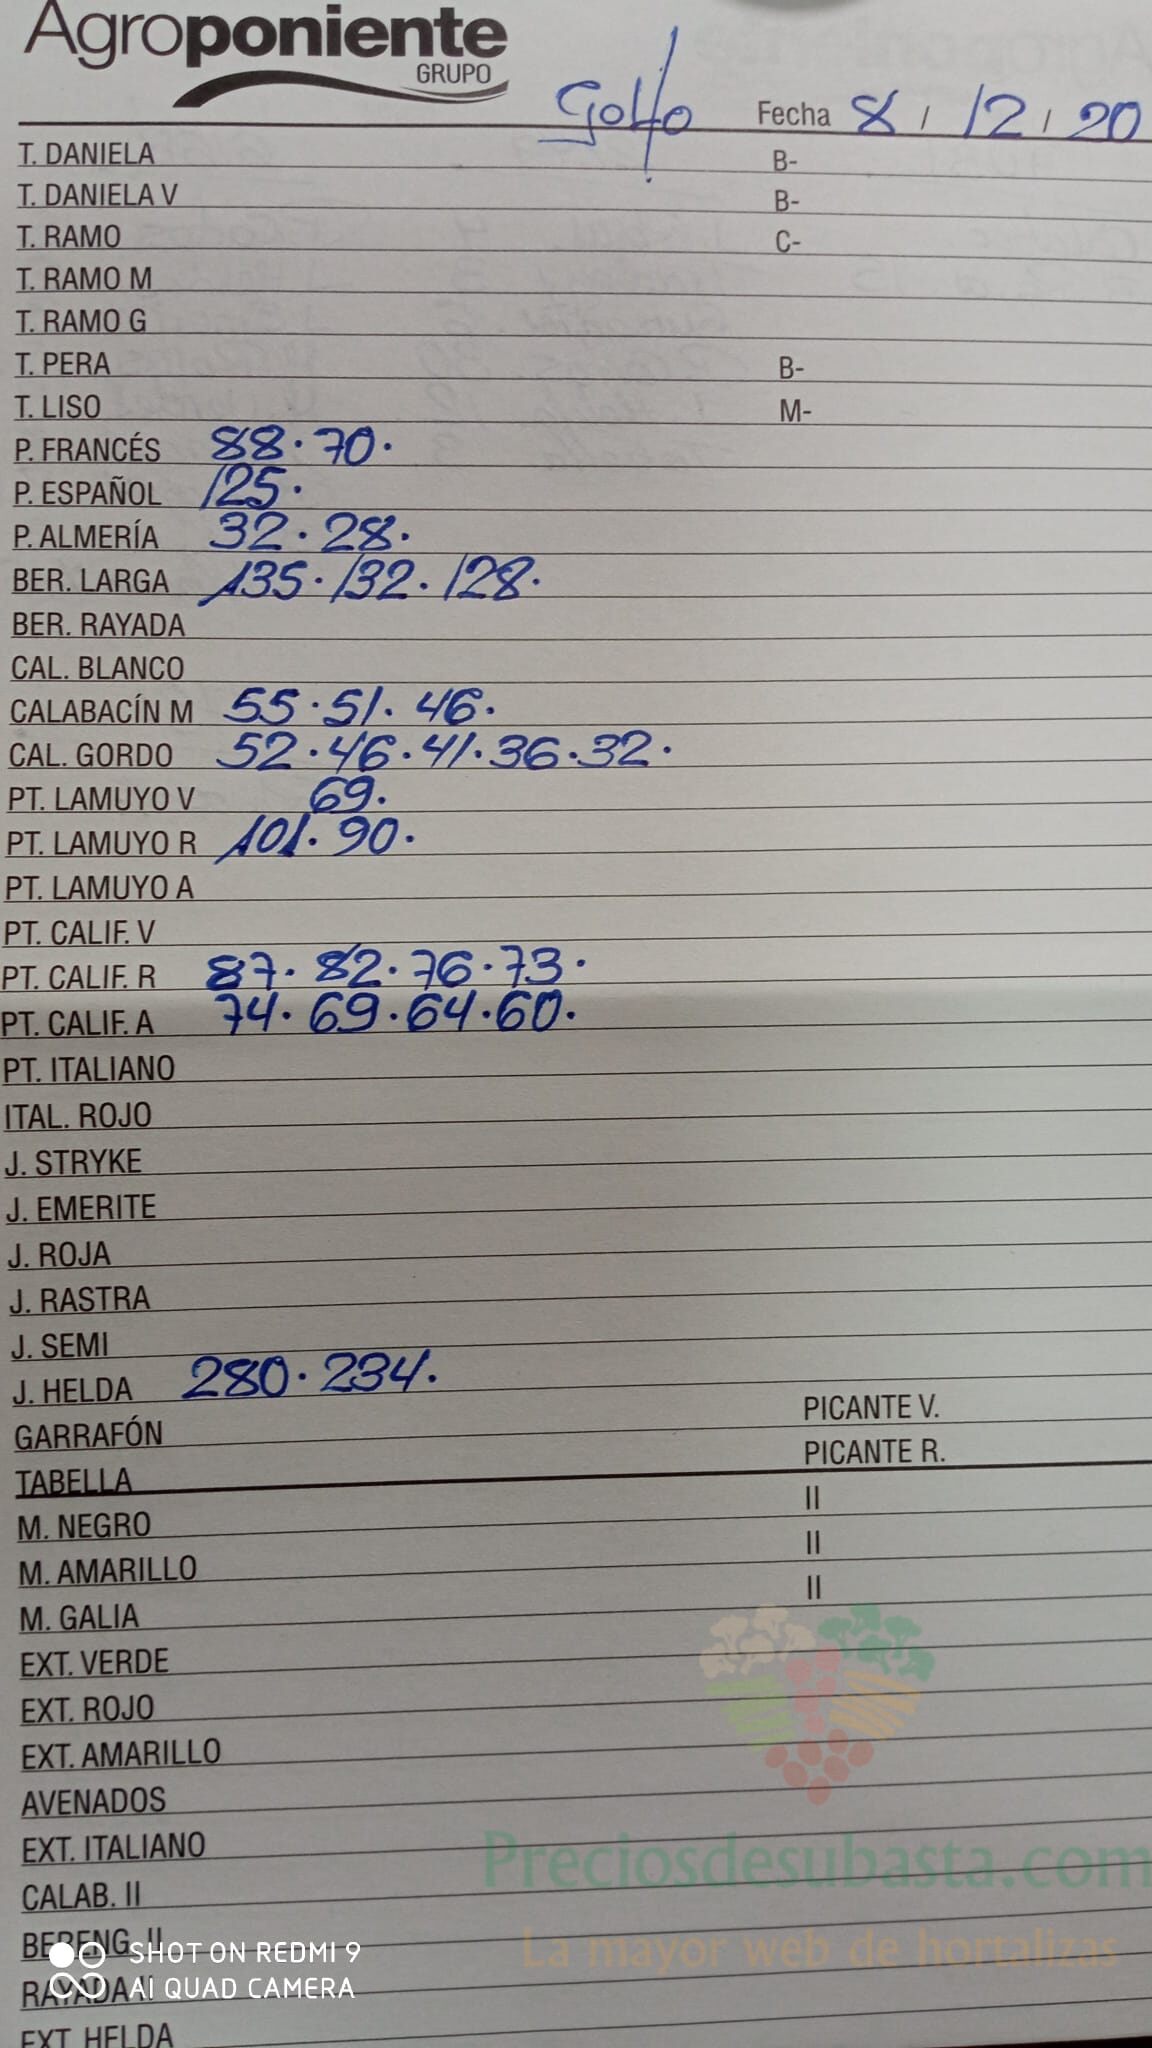 Agroponiente
GRUPO
Golfo Fecha 8 / 12 / 20
T. DANIELA B-
T. DANIELA V B-
T. RAMO C-
T. RAMO M
T. RAMO G
T. PERA B-
T. LISO M-
P. FRANCÉS 88. 70.
P. ESPAÑOL 125.
P. ALMERÍA 32. 28.
BER. LARGA 135. 132. 128.
BER. RAYADA
CAL. BLANCO
CALABACÍN M 55. 51. 46.
CAL. GORDO 52. 46. 41. 36. 32.
PT. LAMUYO V 69.
PT. LAMUYO R 101. 90.
PT. LAMUYO A
PT. CALIF. V
PT. CALIF. R 87. 82. 76. 73.
PT. CALIF. A 74. 69. 64. 60.
PT. ITALIANO
ITAL. ROJO
J. STRYKE
J. EMERITE
J. ROJA
J. RASTRA
J. SEMI
J. HELDA 280. 234.
GARRAFÓN PICANTE V.
TABELLA PICANTE R.
M. NEGRO II
M. AMARILLO II
M. GALIA II
EXT. VERDE
EXT. ROJO
EXT. AMARILLO
AVENADOS
EXT. ITALIANO
Preciosdesubasta.com
CALAB. II
BERENG. II
La mayor web de hortalizas
SHOT ON REDMI 9
RAYADA II
AI QUAD CAMERA
EXT. HELDA